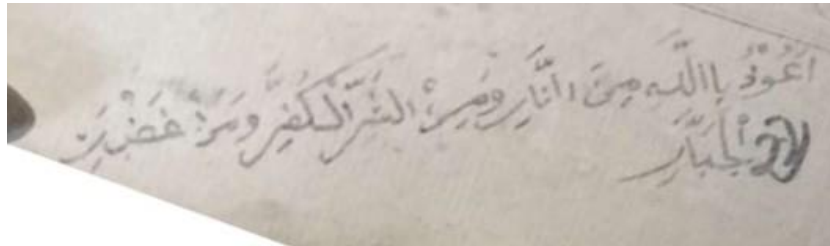 اَعُوْذُ بِااللَّهِ مِنَ النَّارِ وَمِنْ الشَّرِّ الْكَفِرِ وَمِنْ غَضْبِ
الْجَبَّارِ